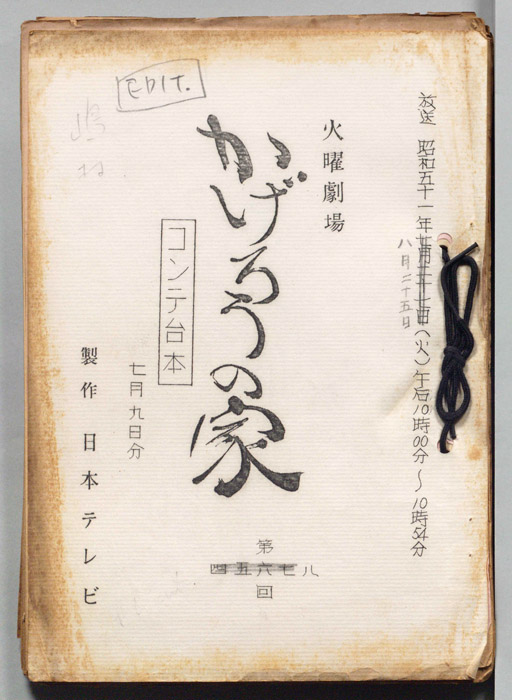 放送 昭和五十一年七月二十七日(火)午后10時00分〜10時54分
八月二十五日
火曜劇場
かげろうの家
EDIT.
コンテ台本
七月九日分
第
四五六七八
回
製作 日本テレビ